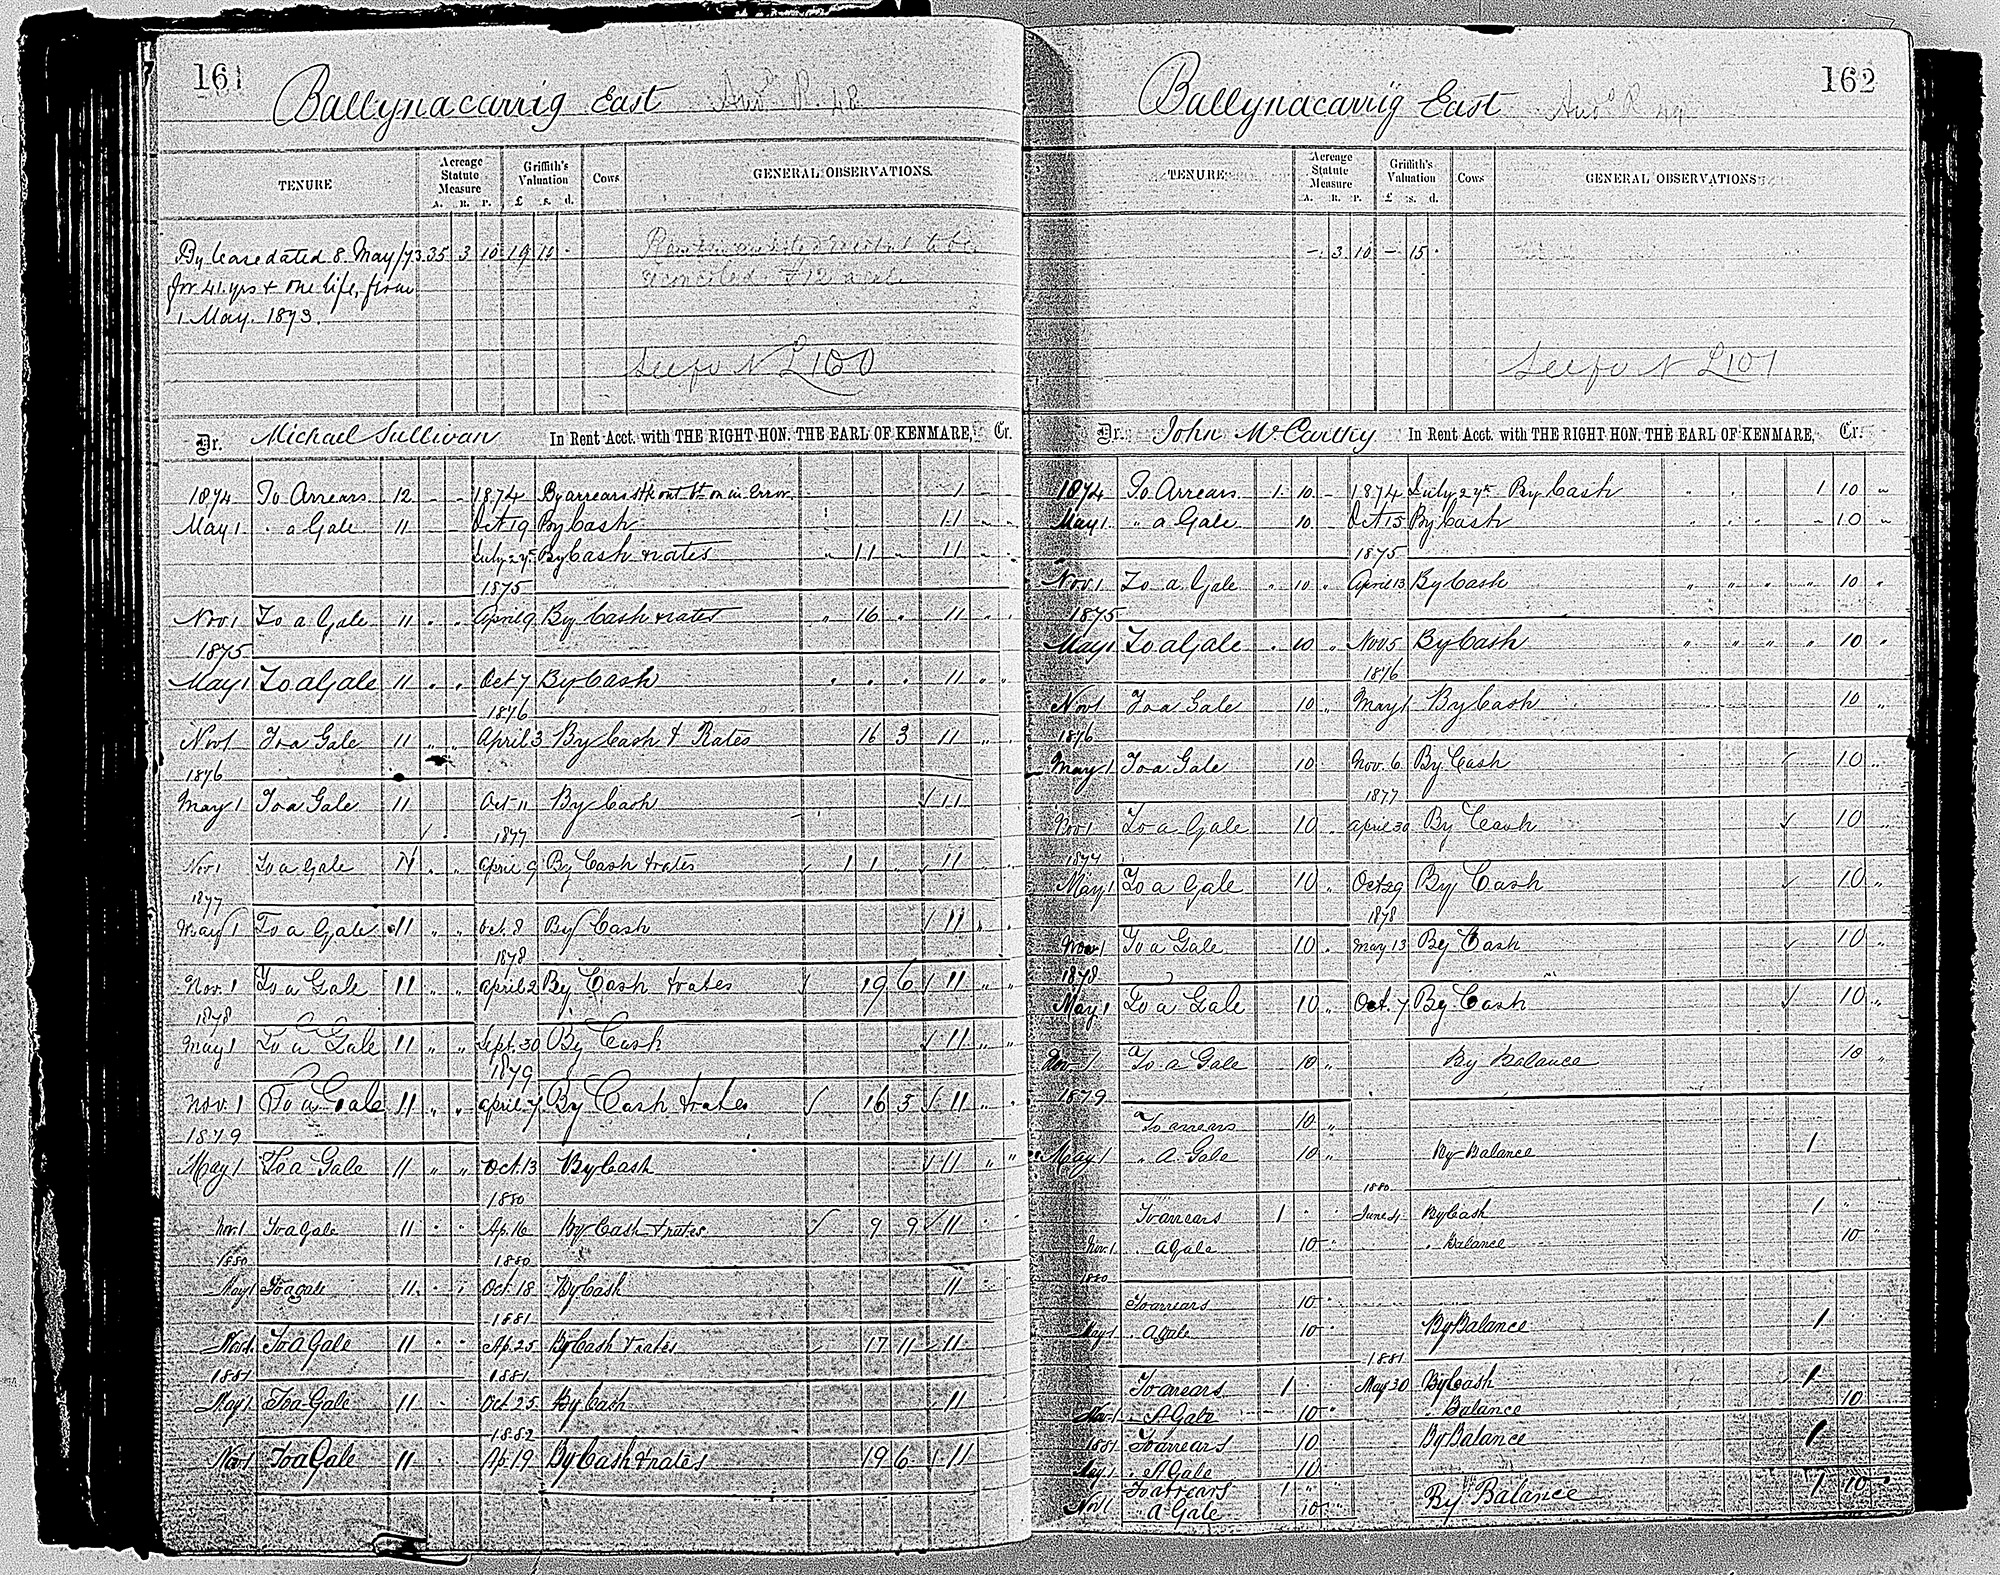 161
Ballynacarrig East
TENURE
Acreage Statute Measure
A. R. P.
Griffith's Valuation
£ s. d.
Cows
GENERAL OBSERVATIONS.
By lease dated 8 May/73 35 3 10 19 15 -
for 41 yrs + one life, from
1 May. 1873.
See fo N L100
Dr. Michael Sullivan In Rent Acct. with THE RIGHT HON. THE EARL OF KENMARE, Cr.
1874 To Arrears 12 - - 1874 By arrears stk out bt on in Error. 1 - -
May 1 " a Gale 11 - - Oct 19 By Cash 11 " "
July 27 By Cash + rates " 11 " 11 " "
1875
Nov 1 To a Gale 11 " " April 9 By Cash + rates " 16 " 11 " "
1875
May 1 To a Gale 11 " " Oct 7 By Cash " " " 11 " "
1876
Nov 1 To a Gale 11 " " April 3 By Cash + Rates 16 3 11 " "
1876
May 1 To a Gale 11 Oct 11 By Cash ✓ 11
1877
Nov 1 To a Gale 11 " " April 9 By Cash + rates ✓ 1 1 " ✓ 11 " "
1877
May 1 To a Gale 11 " " Oct. 8 By Cash ✓ 11 " "
1878
Nov. 1 To a Gale 11 " " April 2 By Cash + rates ✓ 19 6 ✓ 11 " "
1878
May 1 To a Gale 11 " " Sept. 30 By Cash ✓ 11 " "
1879
Nov. 1 To a Gale 11 " " April 7 By Cash + rates ✓ 16 3 ✓ 11 " "
1879
May 1 To a Gale 11 " " Oct. 13 By Cash ✓ 11 " "
1880
Nov. 1 To a Gale 11 " " Ap. 16 By Cash + rates ✓ 9 9 ✓ 11 "
1880 1880
May 1 To a gale 11 " " Oct. 18 By Cash 11 "
1881
Nov 1 To a Gale 11 " " Ap. 25 By Cash + rates 17 11 ✓ 11
1881 1881
May 1 To a Gale 11 " Oct. 25 By Cash 11
1882
Nov 1 To a Gale 11 Ap. 19 By Cash + rates 19 6 ✓ 11
162
Ballynacarrig East
TENURE
Acreage Statute Measure
A. R. P.
Griffith's Valuation
£ s. d.
Cows
GENERAL OBSERVATIONS
- 3 10 - 15 "
See fo N L101
Dr. John McCarthy In Rent Acct. with THE RIGHT HON. THE EARL OF KENMARE, Cr.
1874 To Arrears 1 10 - 1874 July 27 By Cash " " 1 10 "
May 1. " a Gale 10 " Oct 15 By Cash " " " - 10 "
1875
Nov. 1 To a Gale " 10 " April 13 By Cash " " " " 10 "
1875
May 1 To a Gale " 10 " Nov 5 By Cash " " " " 10 "
1876
Nov 1 To a Gale 10 " May 1 By Cash 10 "
1876
May 1 To a Gale 10 " Nov. 6 By Cash ✓ 10 "
1877
Nov 1 To a Gale 10 " April 30 By Cash ✓ 10
1877
May 1 To a Gale 10 " Oct 29 By Cash ✓ 10 "
1878
Nov 1 To a Gale 10 " May 13 By Cash ✓ 10 "
1878
May 1 To a Gale 10 " Oct. 7 By Cash ✓ 10 "
Nov. 1 To a Gale 10 " By Balance 10 "
1879
To arrears 10 "
May 1 " A Gale 10 " By Balance 1
1880
To arrears 1 " " June 4 By Cash 1 "
Nov. 1 " A Gale 10 " " Balance 10 "
1880
To arrears 10 "
May 1 " A gale 10 " By Balance 1
1881
To arrears 1 May 30 By Cash 1
Nov. 1 " A Gale 10 " " Balance 10
1881 To arrears 10 By Balance 1
May 1 " A Gale 10
To arrears 1 " "
Nov 1 A Gale 10 " By Balance 1 10 -